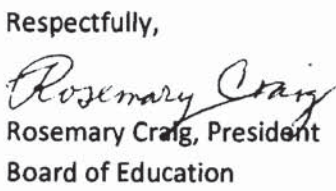 Respectfully,
Rosemary Craig
Rosemary Craig, President
Board of Education